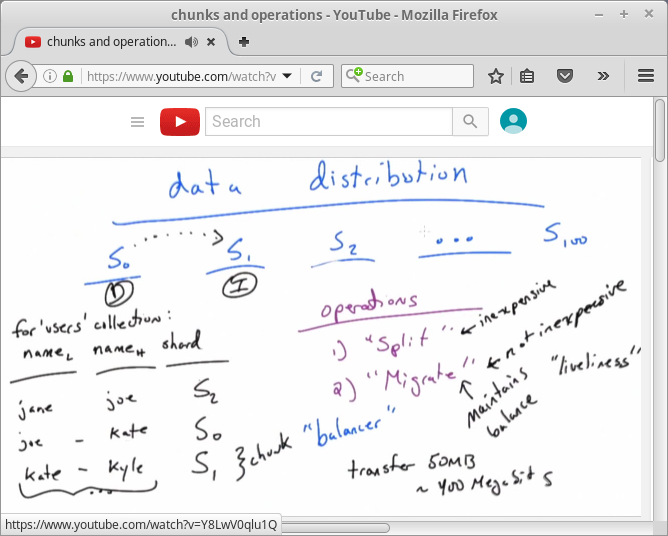 chunks and operations - YouTube - Mozilla Firefox
chunks and operation...
https://www.youtube.com/watch?v
Search
Search
data distribution
S0 S1 S2 ... S100
D I
for 'users' collection:
nameL nameH shard
jane joe S2
joe - kate S0
kate - kyle S1 } chunk
...
"balancer"
operations
1) "Split" inexpensive
2) "Migrate" not inexpensive
maintains balance
"liveliness"
transfer 50MB
~ 400 MegaBits
https://www.youtube.com/watch?v=Y8LwV0qlu1Q